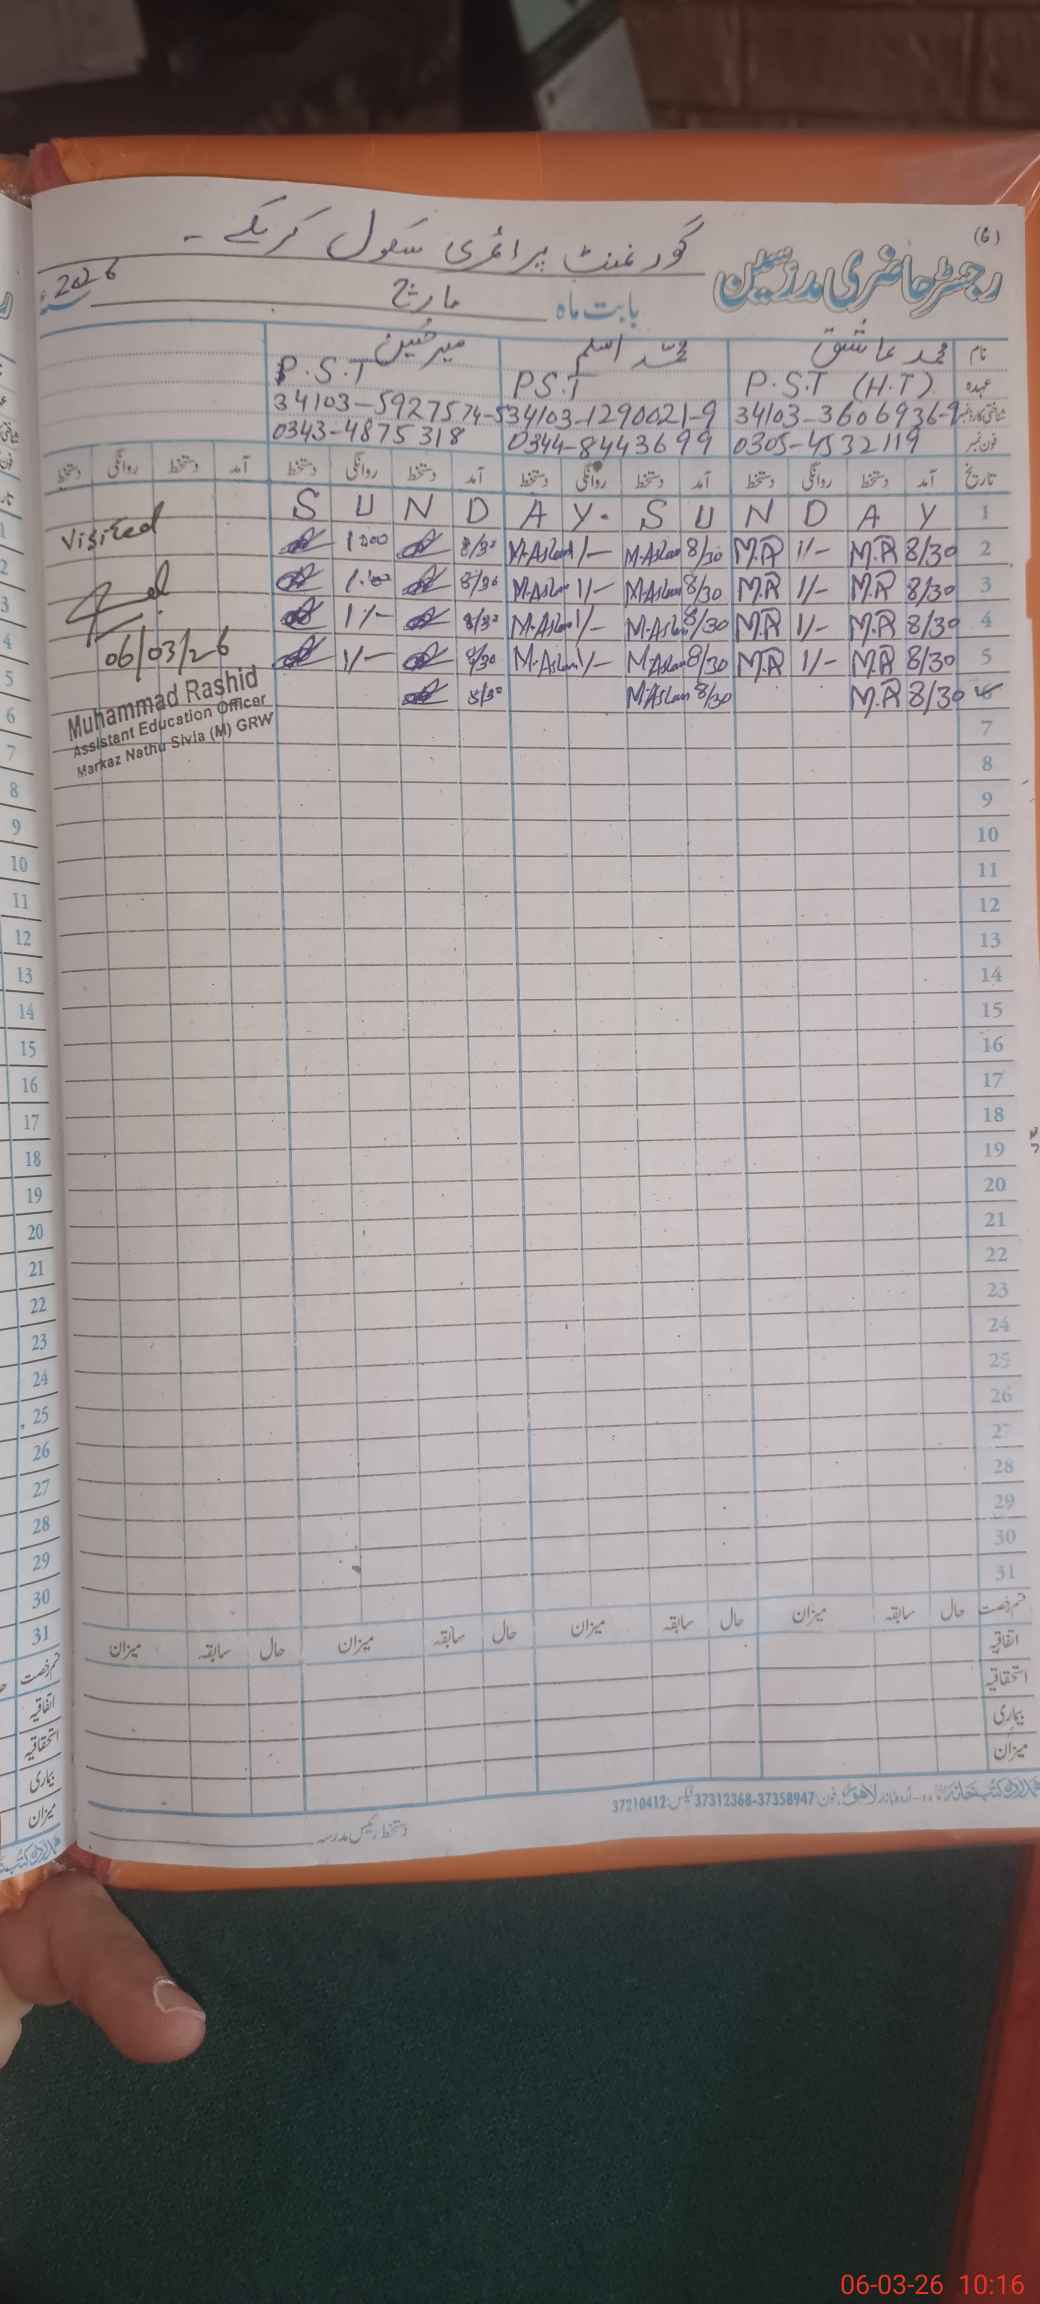 (6)
رجسٹر حاضری مدرسین
گورنمنٹ پرائمری سکول
بابت ماہ مارچ 2026
نام محمد عاشق محمد اسلم میر حسین
عہدہ P.S.T (H.T) P.S.T P.S.T
شناختی کارڈ نمبر 34103-3606936-9 34103-1290021-9 34103-5927574-5
فون نمبر 0305-4532119 0344-8443699 0343-4875318
تاریخ آمد دستخط روانگی دستخط آمد دستخط روانگی دستخط آمد دستخط روانگی دستخط آمد دستخط روانگی دستخط
S U N D A Y. S U N D A Y 1
1000 8/30 M.Aslam 1/- M.Aslam 8/30 M.A 1/- M.A 8/30 2
8/30 M.Aslam 1/- M.Aslam 8/30 M.A 1/- M.A 8/30 3
1/- 8/30 M.Aslam 1/- M.Aslam 8/30 M.A 1/- M.A 8/30 4
1/- 8/30 M.Aslam 1/- M.Aslam 8/30 M.A 1/- M.A 8/30 5
8/30 M.Aslam 8/30 M.A 8/30
Visited
06/03/26
Muhammad Rashid
Assistant Education Officer
Markaz Nathu Sivia (M) GRW
7
8
9
10
11
12
13
14
15
16
17
18
19
20
21
22
23
24
25
26
27
28
29
30
31
قسم رخصت حال سابقہ میزان حال سابقہ میزان حال سابقہ میزان حال سابقہ میزان
اتفاقیہ
استحقاقیہ
بیماری
میزان
اُردو بازار لاہور فون: 37358947-37312368 فیکس: 37210412
دستخط رئیس مدرسہ
1
2
3
4
5
6
7
8
9
10
11
12
13
14
15
16
17
18
19
20
21
22
23
24
25
26
27
28
29
30
31
قسم رخصت
اتفاقیہ
استحقاقیہ
بیماری
میزان
06-03-26 10:16